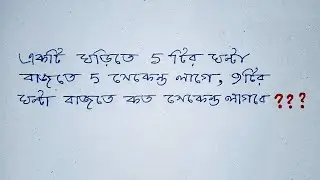 একটি ঘড়িতে 5 টির ঘন্টা
বাজতে 5 সেকেন্ড লাগে, 9টির
ঘন্টা বাজতে কত সেকেন্ড লাগবে ???